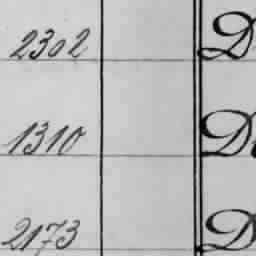 2302 D
1310 D
2173 D